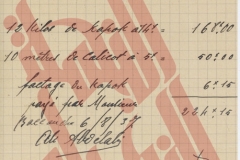 12 Kilos de Kapok à 14= 168=00
10 mètres de calicot à 5= 50=00
factage du Kapok 6=15
payé par Monsieur 224=15
6/8/37